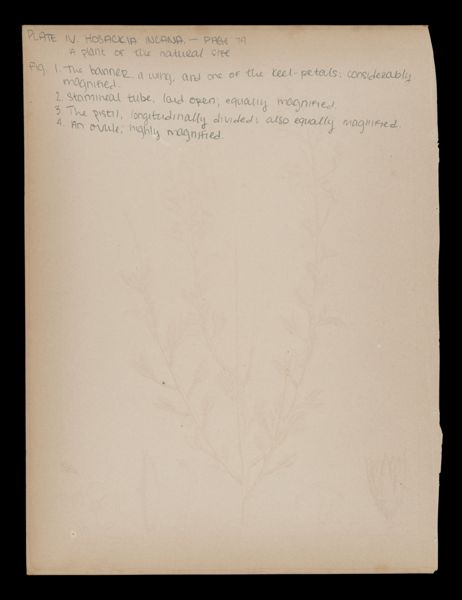 PLATE IV. HOSACKIA INCANA. — PAGE 79
A plant of the natural size
Fig. 1. The banner, a wing, and one of the keel-petals: considerably
magnified.
2. Stamineal tube, laid open; equally magnified.
3. The pistil, longitudinally divided; also equally magnified.
4. An ovule; highly magnified.